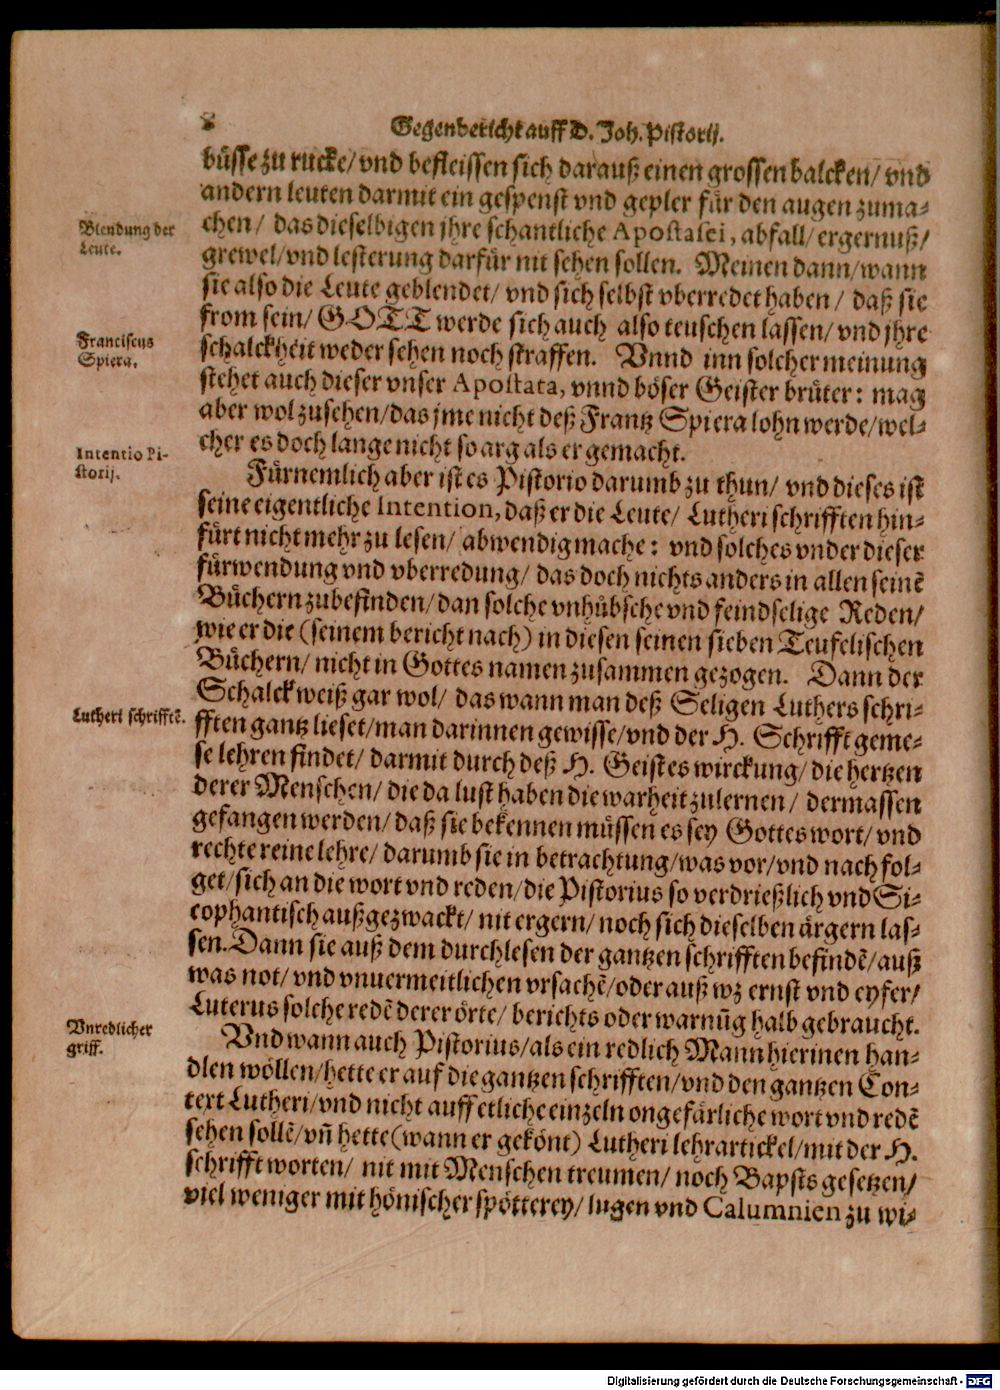 8
Gegenbericht auff D. Joh. Pistorij.
büsse zu rucke/ vnd befleissen sich darauß einen grossen balcken/ vnd
andern leuten darmit ein gespenst vnd gepler für den augen zuma-
chen/ das dieselbigen jhre schantliche Apostasei, abfall/ ergernuß/
grewel/ vnd lesterung darfür nit sehen sollen. Meinen dann/ wann
sie also die Leute geblendet/ vnd sich selbst vberredet haben/ daß sie
from sein/ GOTT werde sich auch also teuschen lassen/ vnd jhre
schalckheit weder sehen noch straffen. Vnnd inn solcher meinung
stehet auch dieser vnser Apostata, vnnd böser Geister brüter: mag
aber wol zusehen/ das jme nicht deß Frantz Spiera lohn werde/ wel-
cher es doch lange nicht so arg als er gemacht.
Fürnemlich aber ist es Pistorio darumb zu thun/ vnd dieses ist
seine eigentliche Intention, daß er die Leute/ Lutheri schrifften hin-
fürt nicht mehr zu lesen/ abwendig mache: vnd solches vnder dieser
fürwendung vnd vberredung/ das doch nichts anders in allen seinē
Büchern zubefinden/ dan solche vnhübsche vnd feindselige Reden/
wie er die (seinem bericht nach) in diesen seinen sieben Teufelischen
Büchern/ nicht in Gottes namen zusammen gezogen. Dann der
Schalck weiß gar wol/ das wann man deß Seligen Luthers schri-
fften gantz lieset/ man darinnen gewisse/ vnd der H. Schrifft geme-
se lehren findet/ darmit durch deß H. Geistes wirckung/ die hertzen
derer Menschen/ die da lust haben die warheit zulernen/ dermassen
gefangen werden/ daß sie bekennen müssen es sey Gottes wort/ vnd
rechte reine lehre/ darumb sie in betrachtung/ was vor/ vnd nach fol-
get/ sich an die wort vnd reden/ die Pistorius so verdrießlich vnd Si-
cophantisch außgezwackt/ nit ergern/ noch sich dieselben ärgern las-
sen. Dann sie auß dem durchlesen der gantzen schrifften befindē/ auß
was not/ vnd vnuermeitlichen vrsachē/ oder auß wz ernst vnd eyfer/
Luterus solche redē derer örte/ berichts oder warnūg halb gebraucht.
Vnd wann auch Pistorius/ als ein redlich Mann hierinen han-
dlen wöllen/ hette er auf die gantzen schrifften/ vnd den gantzen Con-
text Lutheri/ vnd nicht auff etliche einzeln ongefärliche wort vnd redē
sehen sollē/ vñ hette (wann er gekönt) Lutheri lehrartickel/ mit der H.
schrifft worten/ nit mit Menschen treumen/ noch Bapsts gesetzen/
viel weniger mit hönischer spötterey/ lugen vnd Calumnien zu wi-
Blendung der
Leute.
Franciscus
Spiera.
Intentio Pi-
storij.
Lutheri schrifftē.
Vnredlicher
griff.
Digitalisierung gefördert durch die Deutsche Forschungsgemeinschaft - DFG